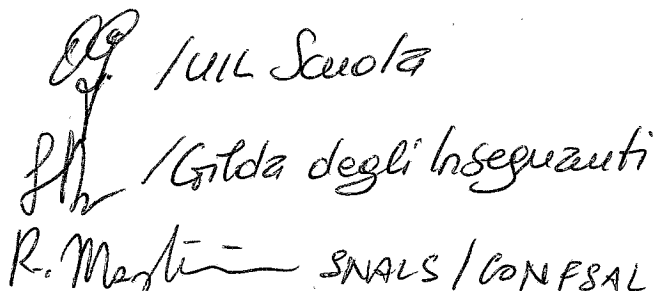 /UIL Scuola
/Gilda degli Insegnanti
R. SNALS/CONFSAL